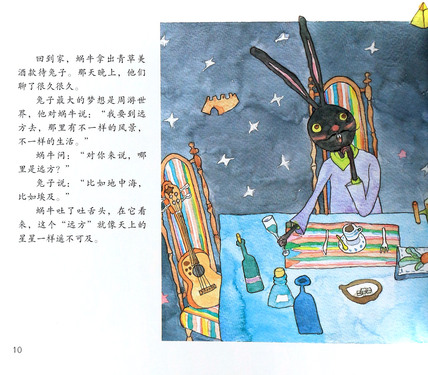 回到家，蜗牛拿出青草美
酒款待兔子。那天晚上，他们
聊了很久很久。
兔子最大的梦想是周游世
界，他对蜗牛说：“我要到远
方去，那里有不一样的风景，
不一样的生活。”
蜗牛问：“对你来说，哪
里是远方？”
兔子说：“比如地中海，
比如埃及。”
蜗牛吐了吐舌头，在它看
来，这个“远方”就像天上的
星星一样遥不可及。
10